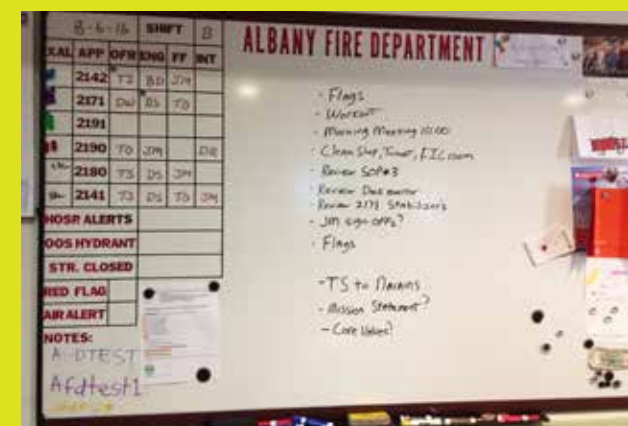 8-6-16 SHIFT B
ALBANY FIRE DEPARTMENT
XAL APP OFR ENG FF INT
2142 TS BD JM
2171 DW DS TD
2191
2190 TD JM DR
2180 TS DS JM
2141 TS DS TD JM
HOSP ALERTS
OOS HYDRANT
STR. CLOSED
RED FLAG
AIR ALERT
NOTES:
A DTEST
Afdtest1
- Flags
- Workout
- Morning Meeting 10:00
- Clean Shop, Tower, EIC room
- Review SOP#3
- Review
- Review 2171 Stabilizers
- JM sign-offs?
- Flags
- TS to
- Mission Statement?
- Core Values?